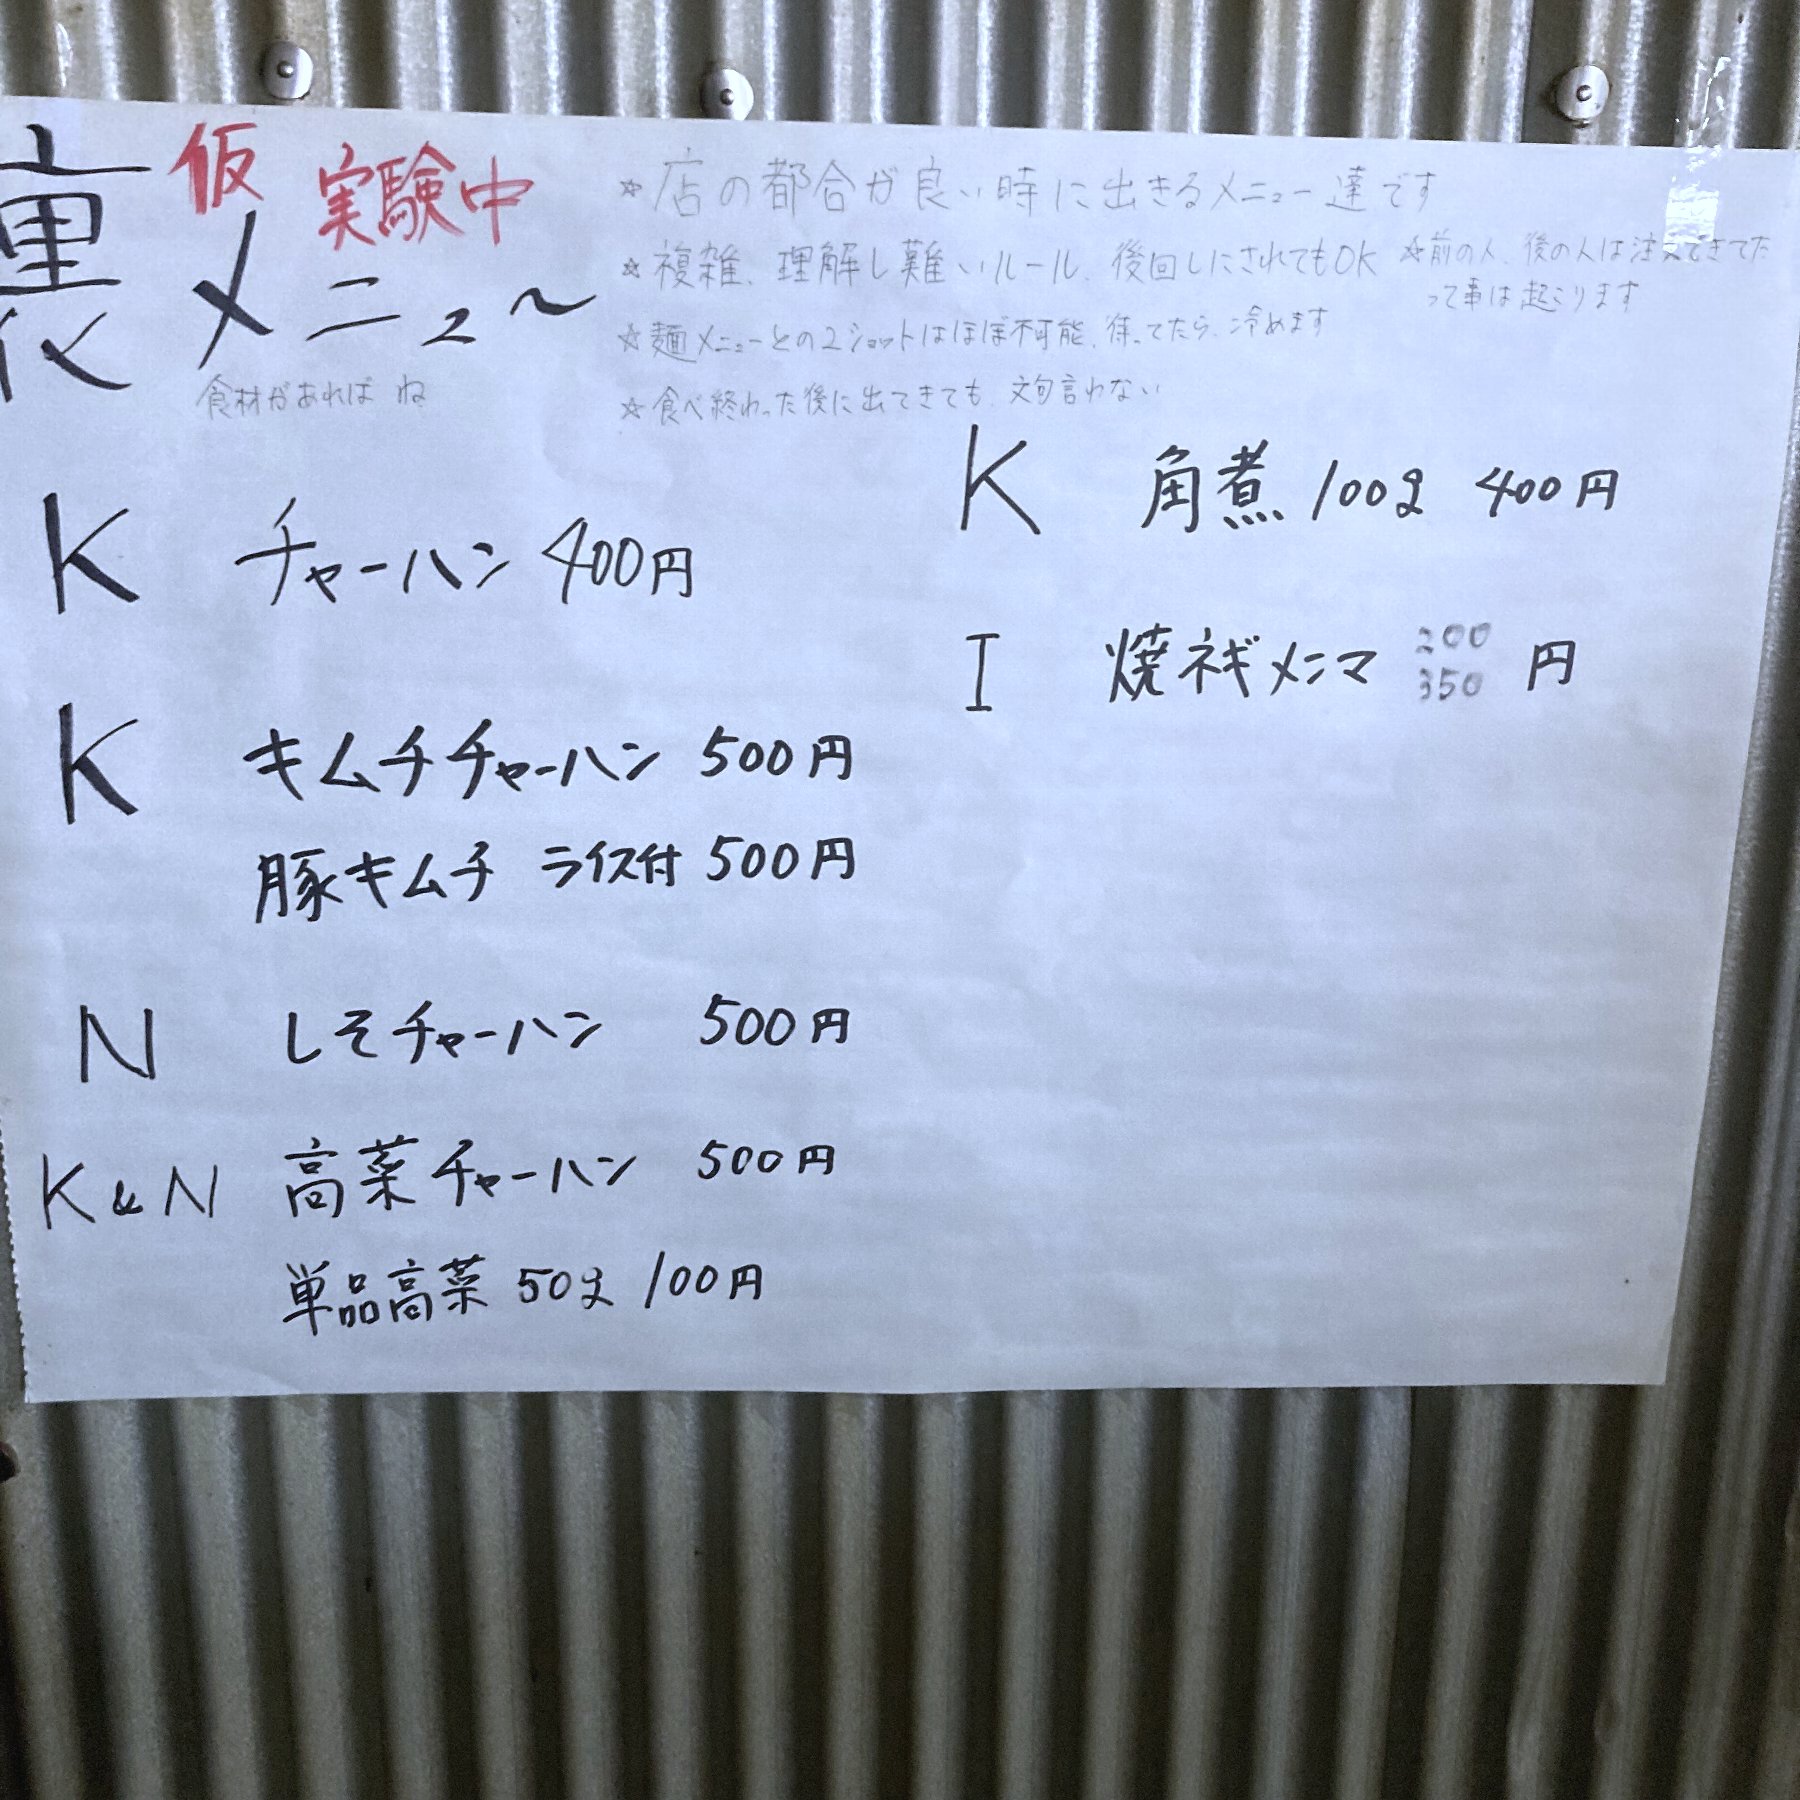 仮 実験中
裏メニュ〜
食材があれば ね
☆店の都合が良い時に出きるメニュー達です
☆複雑、理解し難いルール、後回しにされてもOK
☆前の人、後の人は注文できてた
って事は起こります
☆麺メニューとの2ショットはほぼ不可能、待ってたら、冷めます
☆食べ終わった後に出てきても、文句言わない
K チャーハン 400円
K キムチチャーハン 500円
豚キムチ ライス付 500円
N しそチャーハン 500円
K&N 高菜チャーハン 500円
単品高菜 50g 100円
K 角煮 100g 400円
I 焼ネギメンマ 200 350 円